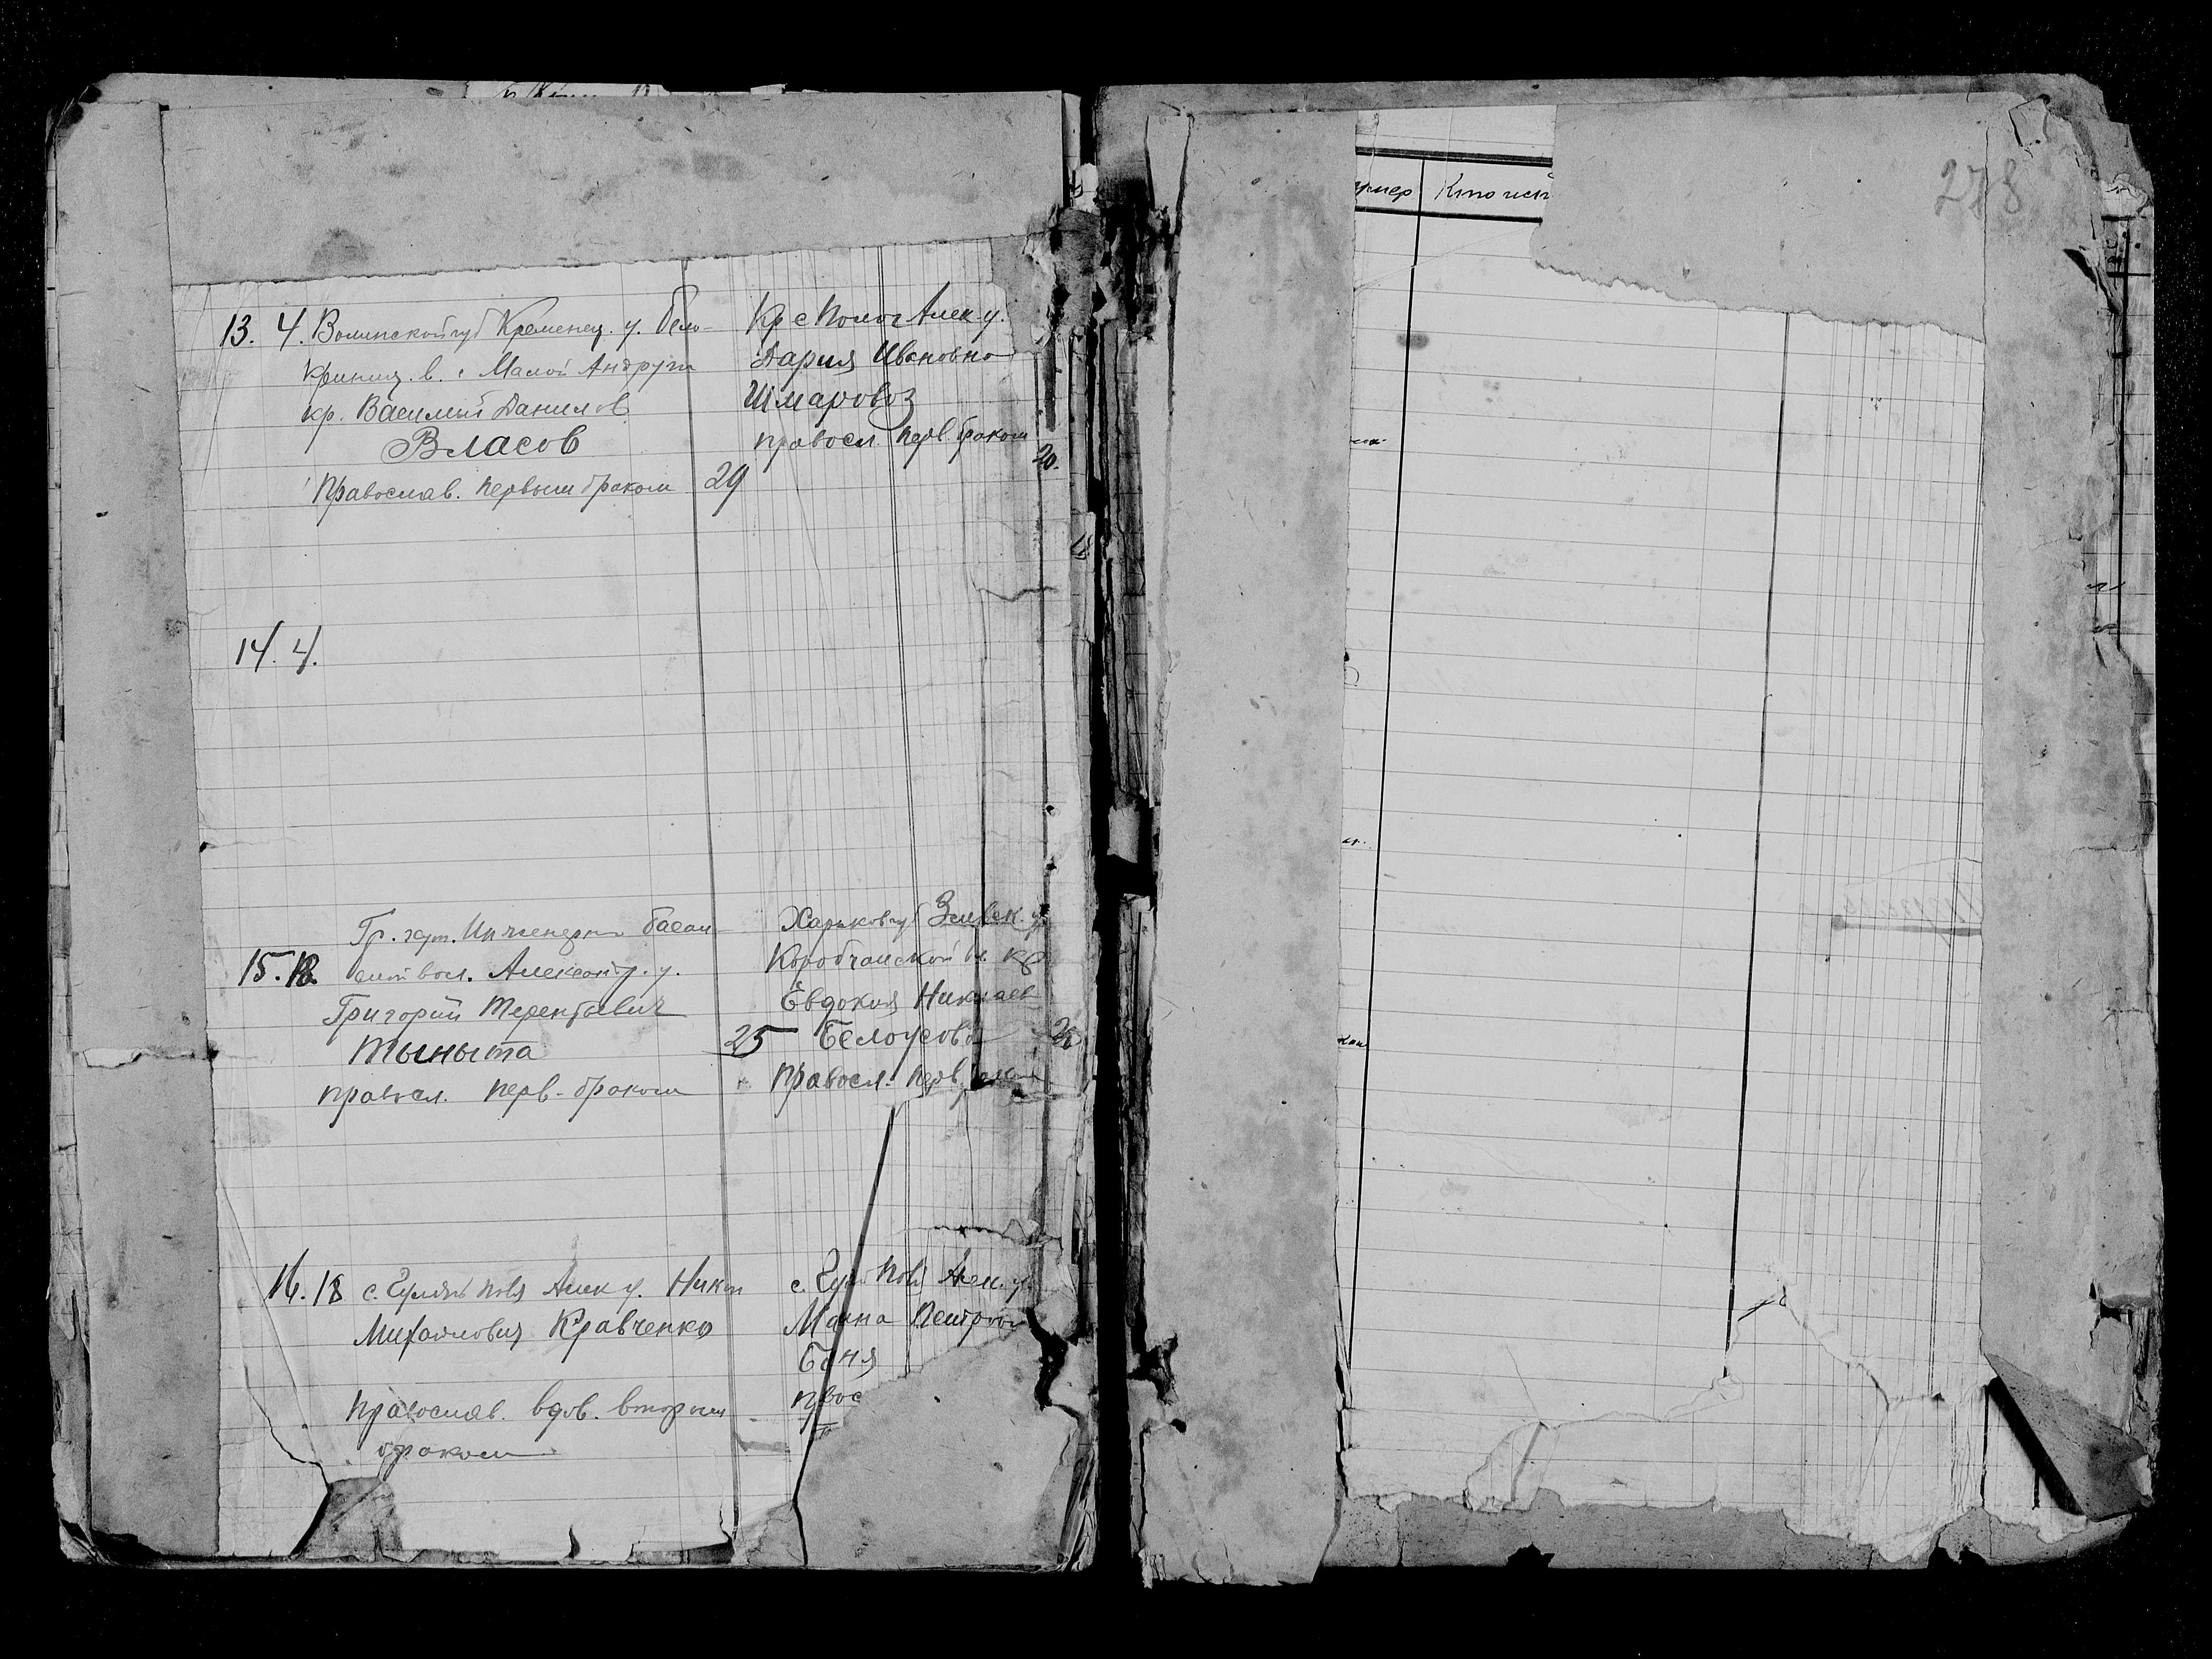 13. 4. Волинской губ Кременец. у. бело-
криниц. в. с Малой Андруги
кр. Василий Данилов
Власов
Православ. первым браком 29
Кр с Полог Алек у.
Дария Ивановна
Шмаровоз
правосл. перв. браком
20.
14. 4.
Гр. хут. Инженерна басан-
15. 18. вол. Александр. у.
Григорий Терентьевич
Тыныта 25
правосл. перв. браком
Харьков губ Змиевск. у.
Коробчанской в. кр
Евдокия Николаев
Белоусова
правосл. перв.
16. 18 с. Гуляй поля Алек у. Никон
Михайлович Кравченко
Православ. вдов. вторым
браком
с. Гуляй Поля Алек. у.
Петров
прavос
278
Кто исп